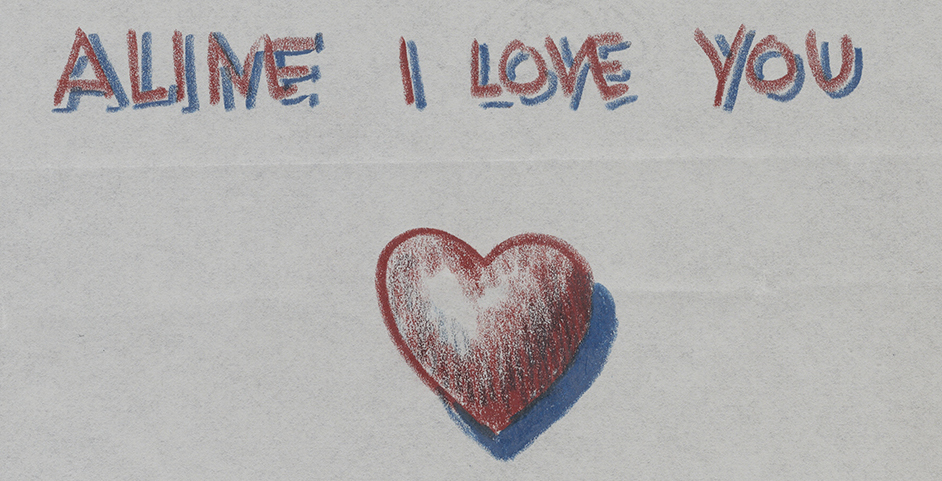 ALINE I LOVE YOU